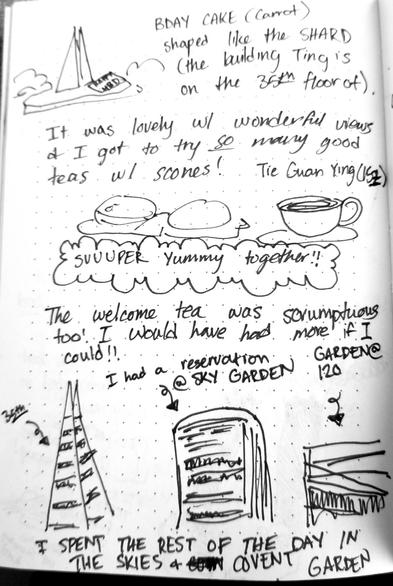 BDAY CAKE (Carrot)
shaped like the SHARD
(the building Ting is
on the 35th floor of).
It was lovely w/ wonderful views
& I got to try so many good
teas w/ scones! Tie Guan Ying
SUUUPER Yummy together!!
The welcome tea was scrumptuous
too! I would have had more if I
could!!
I had a reservation
@ SKY GARDEN
GARDEN@
120
35th
I SPENT THE REST OF THE DAY IN
THE SKIES + COVENT GARDEN